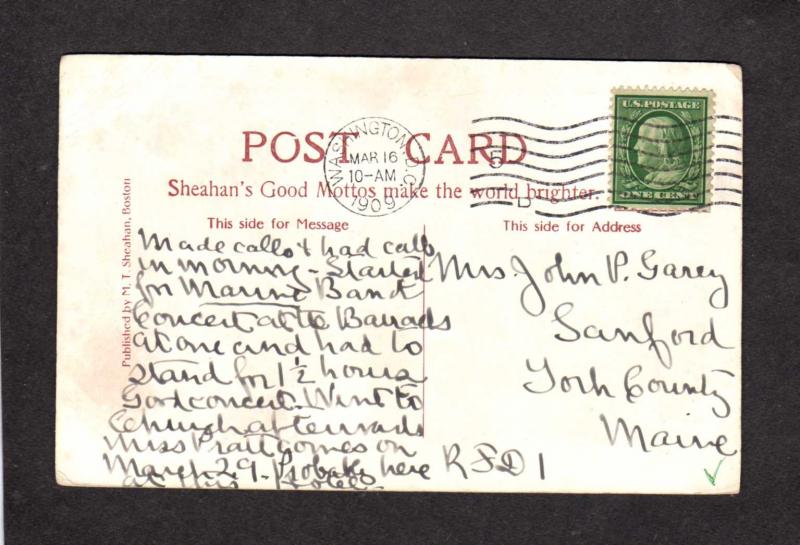 POST CARD
WASHINGTON, D.C.
MAR 16
10-AM
1909
5
D
U.S. POSTAGE
ONE CENT
Sheahan's Good Mottos make the world brighter.
This side for Message
This side for Address
Published by M. T. Sheahan, Boston
Made calls & had calls
in morning - Started
for Marine Band
Concert at the Barracks
at one and had to
stand for 1½ hours
Good concert. Went to
Church afterwards
Miss Pratt comes on
March 29 - Probably here
at this Hotel
Mrs. John P. Garey
Sanford
York County
Maine
R F D 1